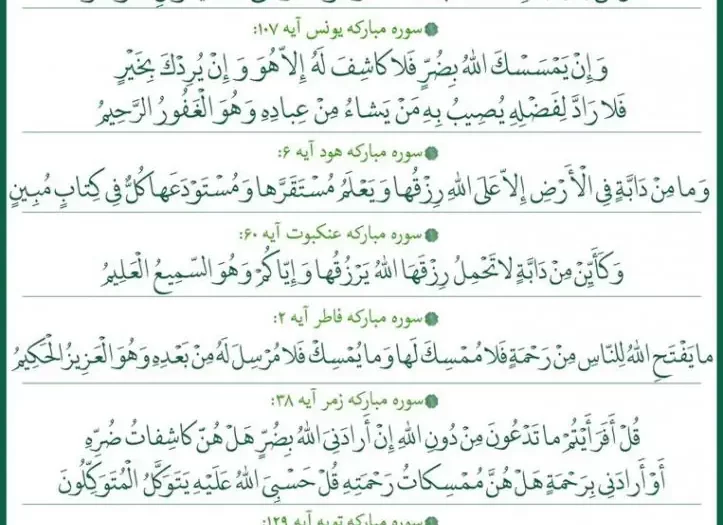 سوره مبارکه یونس آیه ۱۰۷:
وَ اِنْ يَمْسَسْكَ اللهُ بِضُرٍّ فَلا كاشِفَ لَهُ اِلاّ هُوَ وَ اِنْ يُرِدْكَ بِخَيْرٍ
فَلا رَادَّ لِفَضْلِهِ يُصِيبُ بِهِ مَنْ يَشاءُ مِنْ عِبادِهِ وَ هُوَ الْغَفُورُ الرَّحِيمُ
سوره مبارکه هود آیه ۶:
وَ ما مِنْ دَابَّةٍ فِي الْأَرْضِ اِلاّ عَلَى اللهِ رِزْقُها وَ يَعْلَمُ مُسْتَقَرَّها وَ مُسْتَوْدَعَها كُلٌّ فِي كِتابٍ مُبِينٍ
سوره مبارکه عنکبوت آیه ۶۰:
وَ كَأَيِّنْ مِنْ دَابَّةٍ لا تَحْمِلُ رِزْقَهَا اللهُ يَرْزُقُها وَ اِيّاكُمْ وَ هُوَ السَّمِيعُ الْعَلِيمُ
سوره مبارکه فاطر آیه ۲:
ما يَفْتَحِ اللهُ لِلنّاسِ مِنْ رَحْمَةٍ فَلا مُمْسِكَ لَها وَ ما يُمْسِكْ فَلا مُرْسِلَ لَهُ مِنْ بَعْدِهِ وَ هُوَ الْعَزِيزُ الْحَكِيمُ
سوره مبارکه زمر آیه ۳۸:
قُلْ أَفَرَأَيْتُمْ ما تَدْعُونَ مِنْ دُونِ اللهِ اِنْ أَرادَنِيَ اللهُ بِضُرٍّ هَلْ هُنَّ كاشِفاتُ ضُرِّهِ
أَوْ أَرادَنِي بِرَحْمَةٍ هَلْ هُنَّ مُمْسِكاتُ رَحْمَتِهِ قُلْ حَسْبِيَ اللهُ عَلَيْهِ يَتَوَكَّلُ الْمُتَوَكِّلُونَ
سوره مبارکه توبه آیه ۱۲۹: